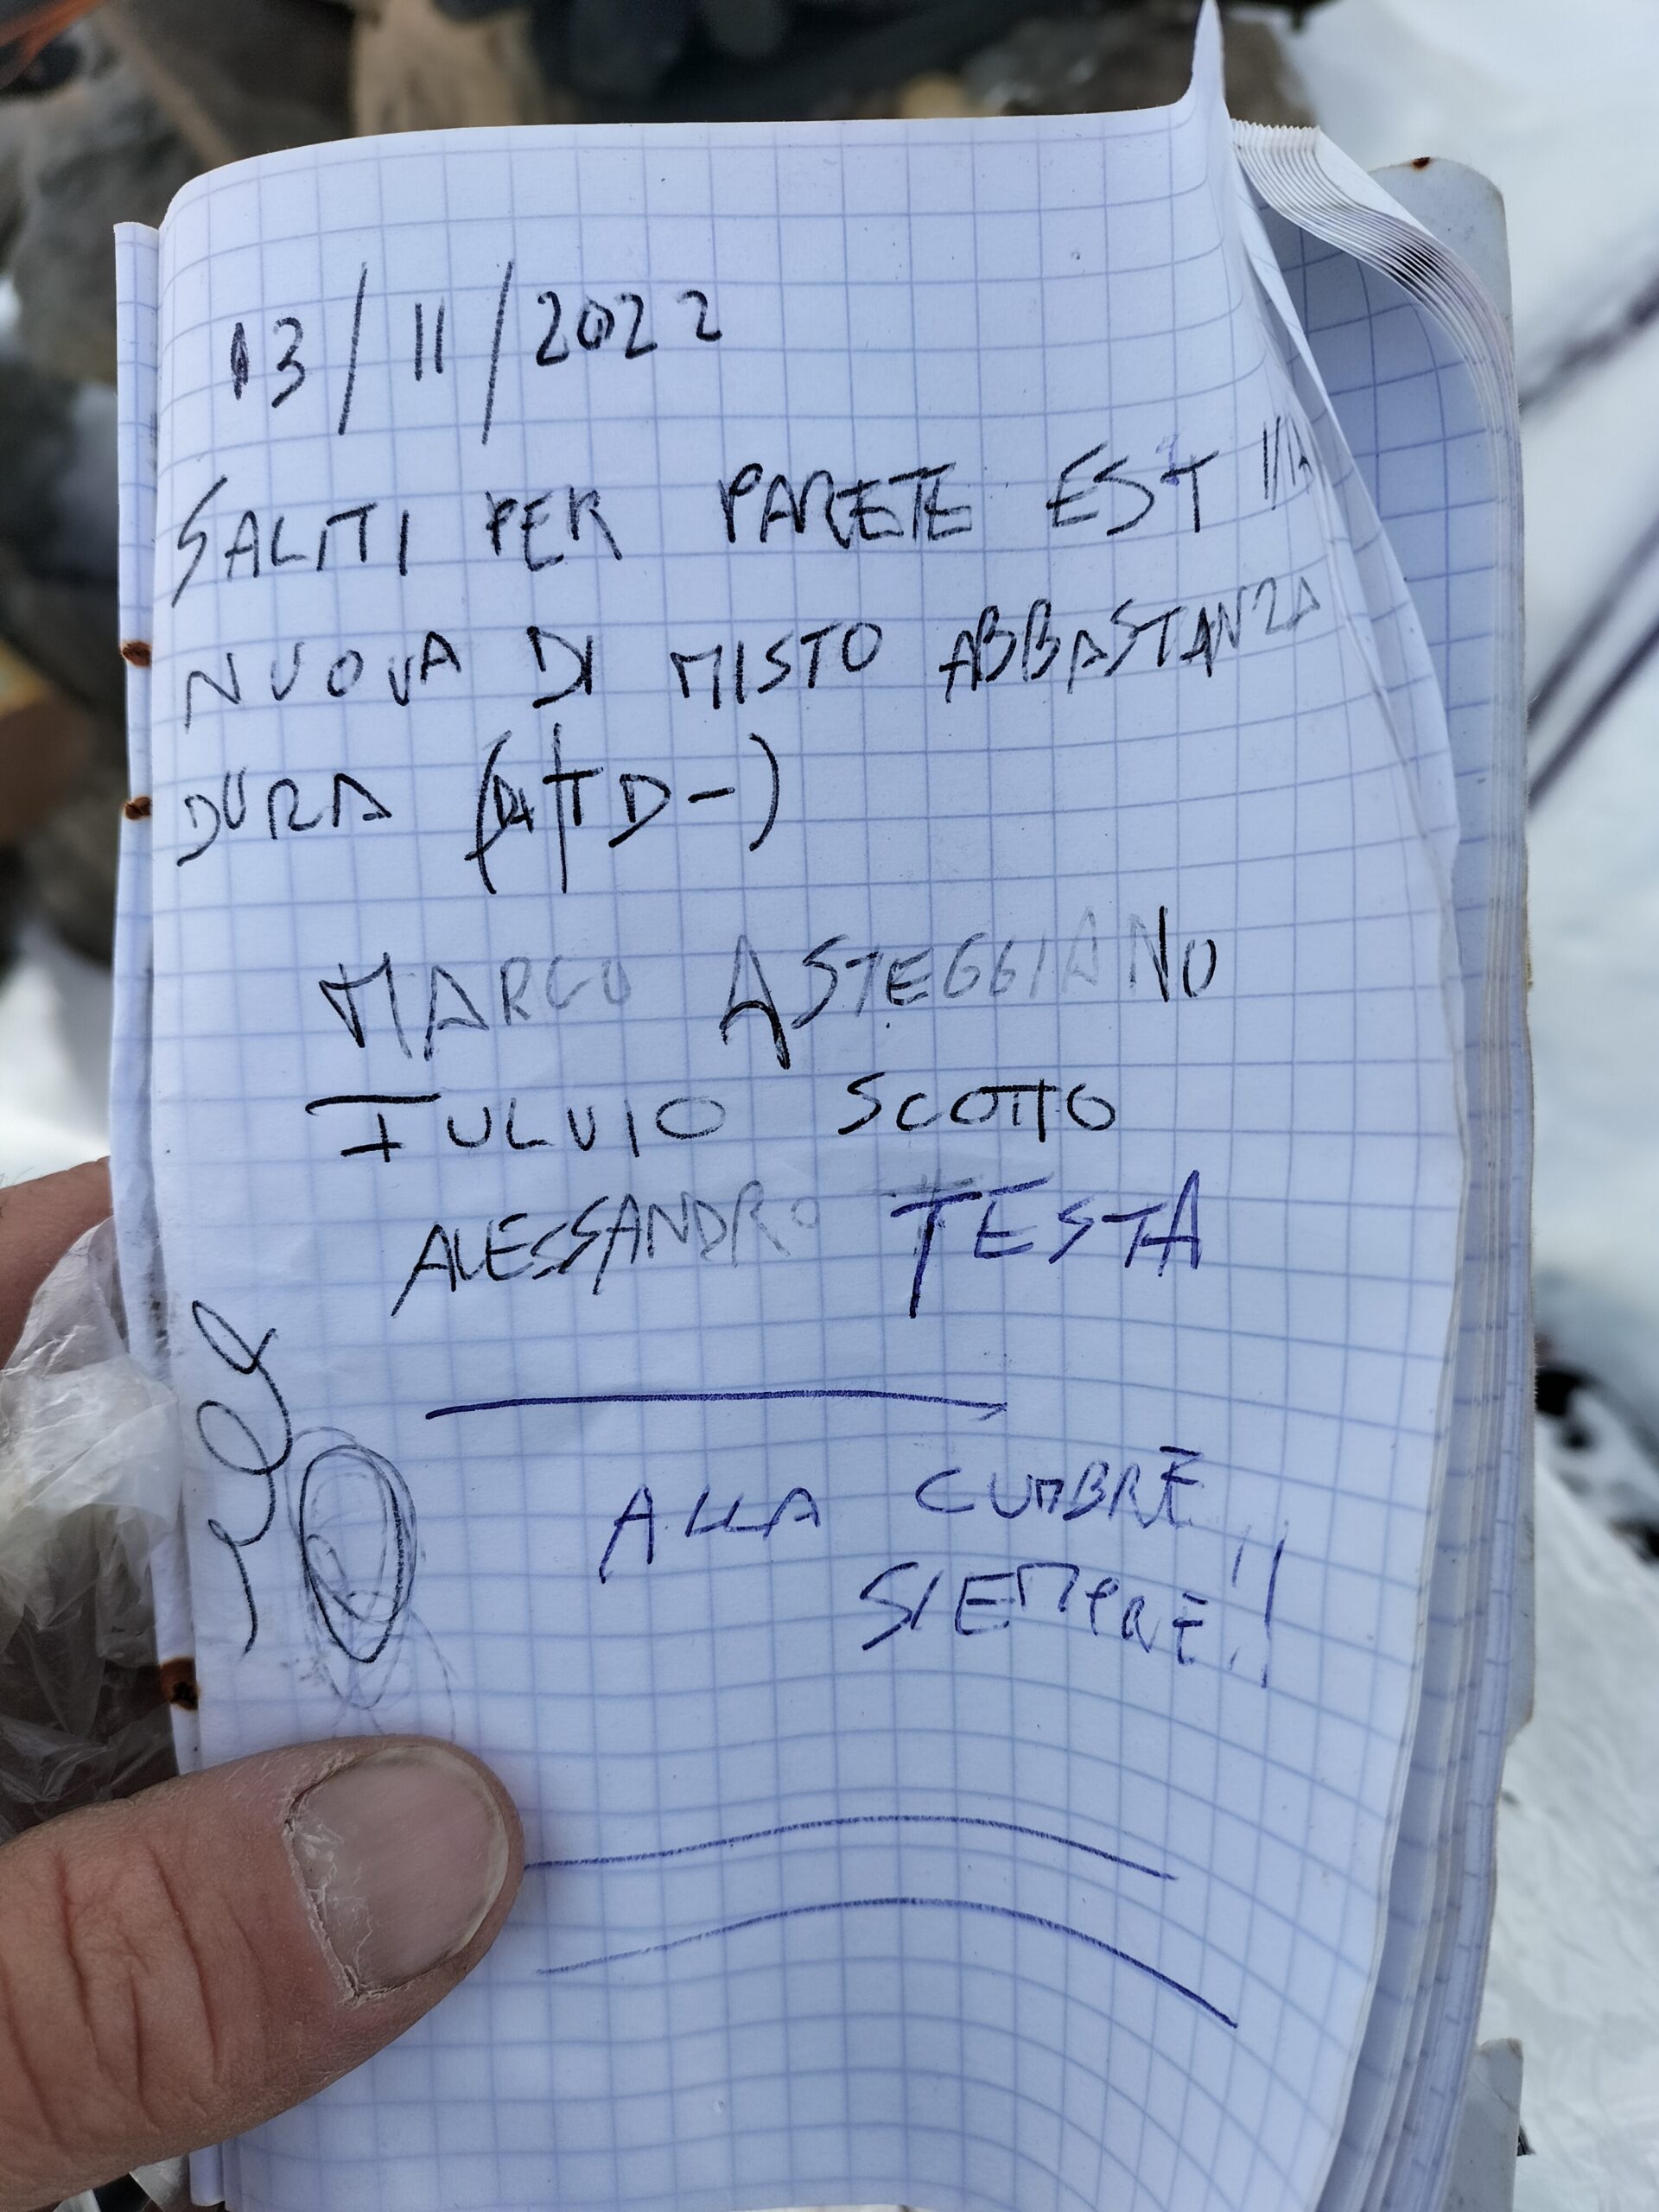 13/11/2022
SALITI PER PARETE EST VIA
NUOVA DI MISTO ABBASTANZA
DURA (TD-)
MARCO ASTEGGIANO
FULVIO SCOTTO
ALESSANDRO TESTA
ALLA CUMBRE
SIEMPRE!!